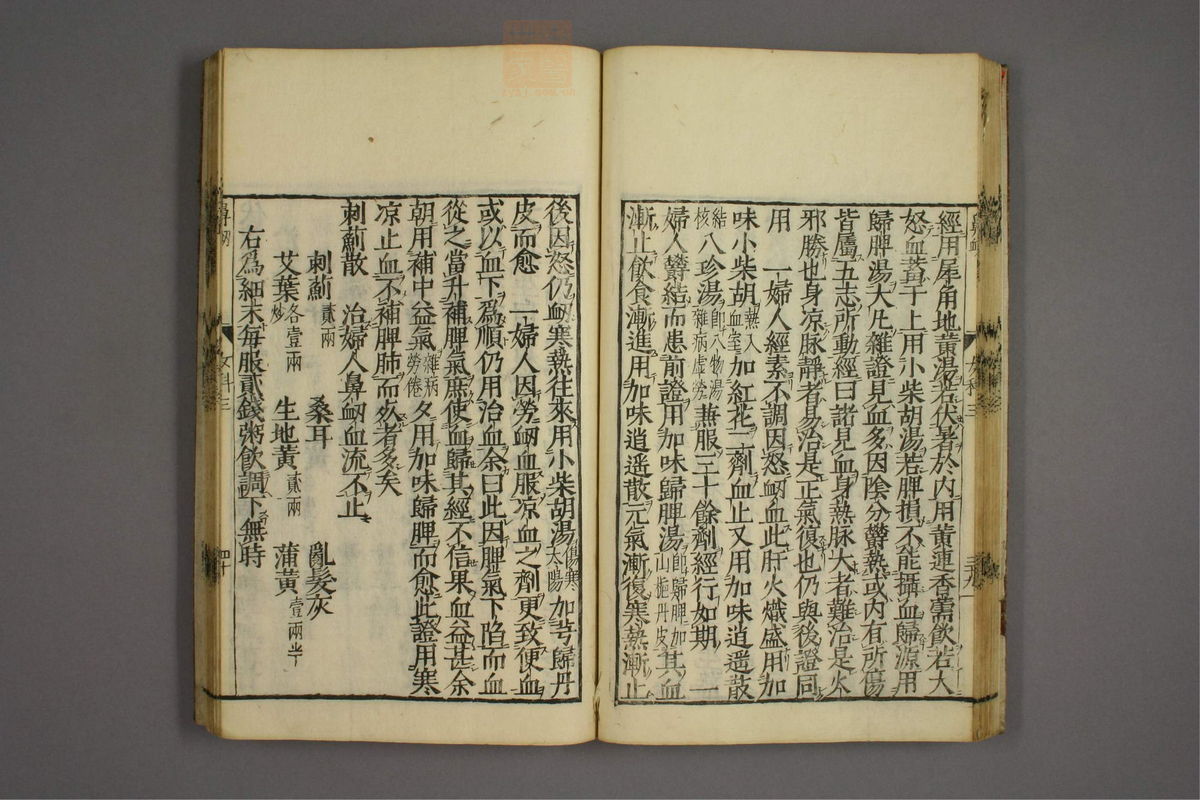 經用犀角地黃湯若伏暑於內用黃連香薷飲若大
怒血菀于上用小柴胡湯若脾損不能攝血歸源用
歸脾湯大凡雜證見血多因陰分鬱熱或內有所傷
皆屬五志所動經曰諸見血身熱脉大者難治是火
邪勝也身凉脉靜者易治是正氣復也仍與後證同
用　一婦人經素不調因怒衂血此肝火熾盛用加
味小柴胡熱入血室加紅花二劑血止又用加味逍遥散
結核八珍湯即十八物湯雜病虛勞兼服三十餘劑經行如期　一
婦人鬱結而患前證用加味歸脾湯即歸脾加山梔丹皮其血
漸止飲食漸進用加味逍遥散元氣漸復寒熱漸止
後因怒仍衂寒熱往來用小柴胡湯傷寒太陽加芎歸丹
皮而愈　一婦人因勞衂血服凉血之劑更致便血
或以血下爲順仍用治血余曰此因脾氣下陷而血
從之當升補脾氣庶使血歸其經不信果血益甚余
朝用補中益氣雜病勞倦夕用加味歸脾而愈此證用寒
凉止血不補脾肺而歿者多矣
刺薊散　治婦人鼻衂血流不止
刺薊貳兩　桑耳　亂髮灰
艾葉炒各壹兩　生地黃貳兩　蒲黃壹兩半
右爲細末每服貳錢粥飲調下無時
鼻衂
女科三
四十
鼻衂
女科三
三九